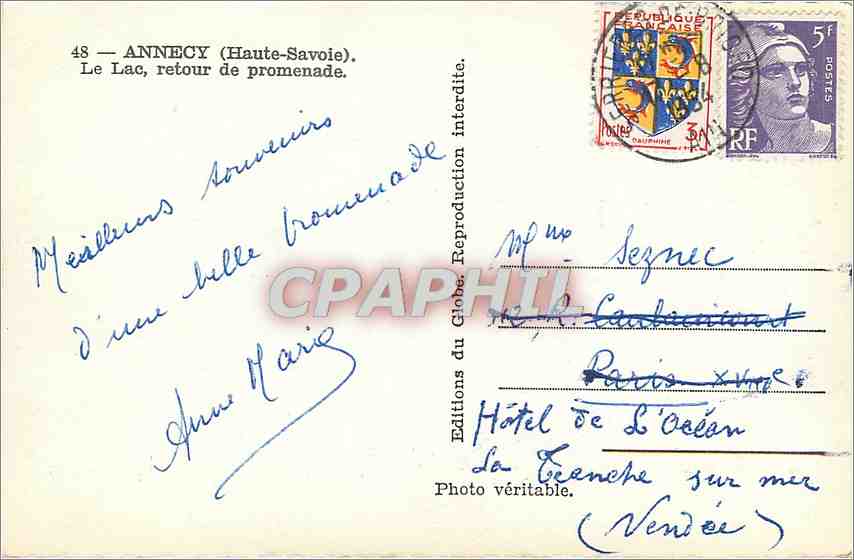 48 — ANNECY (Haute-Savoie).
Le Lac, retour de promenade.
Meilleurs souvenirs
d'une belle promenade
Anne Marie
Editions du Globe. Reproduction interdite.
Photo véritable.
REPUBLIQUE
FRANÇAISE
Postes 3F
DAUPHINE
1954
5F
POSTES
RF
CPAPHIL
Mme Seznec
R. Caulaincourt
Paris XVIIIe
Hôtel de L'Océan
La Tranche sur mer
(Vendée)